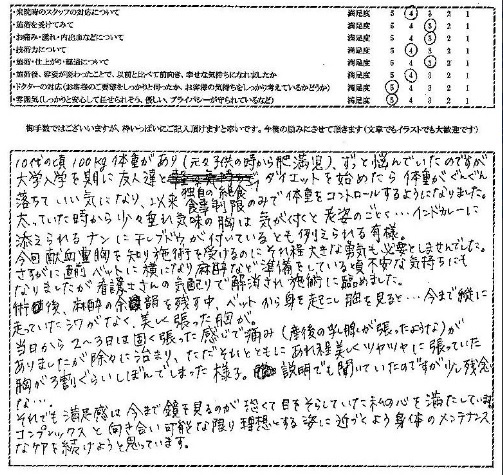 ・来院時のスタッフの対応について 満足度 5 4 3 2 1
・施術を受けてみて 満足度 5 4 3 2 1
・お痛み・腫れ・内出血などについて 満足度 5 4 3 2 1
・技術力について 満足度 5 4 3 2 1
・施術・仕上がり・経過について 満足度 5 4 3 2 1
・施術後、容姿が変わったことで、以前と比べて前向き、幸せな気持ちになれましたか 満足度 5 4 3 2 1
・ドクターの対応(お客様のご要望をしっかりと伺ったか、お客様の気持ちをしっかり考えているかどうか) 満足度 5 4 3 2 1
・雰囲気(しっかりと安心して任せられそう、優しい、プライバシーが守られているなど) 満足度 5 4 3 2 1
御手数ではございますが、枠いっぱいにご記入頂けますと幸いです。今後の励みにさせて頂きます(文章でもイラストでも大歓迎です)
10代の頃100kg体重があり(元々子供の時から肥満児)、ずっと悩んでいたのですが
大学入学を期に友人達とダイエットを始めたら体重がぐんぐん
落ちていい気になり、以来独自の絶食食事制限のみで体重をコントロールするようになりました。
太っていた時から少々垂れ気味の胸は気が付くと老婆のごとく…インドカレーに
添えられるナンにチレブドウが付いているとも例えられる有様。
今回献血豊胸を知り施術を受けるのにそれ程大きな勇気も必要としませんでした。
さすがに直前ベットに横になり麻酔など準備をしている頃不安な気持ちにも
なりましたが看護士さんの気配りで解消され施術に臨めました。
術後、麻酔の余韻を残す中、ベットから身を起こし胸を見ると…今まで縦に
走っていたシワがなく、美しく張った胸が。
当日から2〜3日は固く張った感じで痛み(産後の乳腺が張ったような)が
ありましたが除々に治まり、ただそれとともにあれ程美しくツヤツヤに張っていた
胸が3割ぐらいしぼんでしまった様子。説明でも聞いていたのですが少し残念
な…。
それでも満足感は今まで鏡を見るのが恐くて目をそらしていた私の心を満たしています
コンプレックスと向き合い可能な限り理想とする姿に近づくよう身体のメンテナンス
なケアを続けようと思っています。